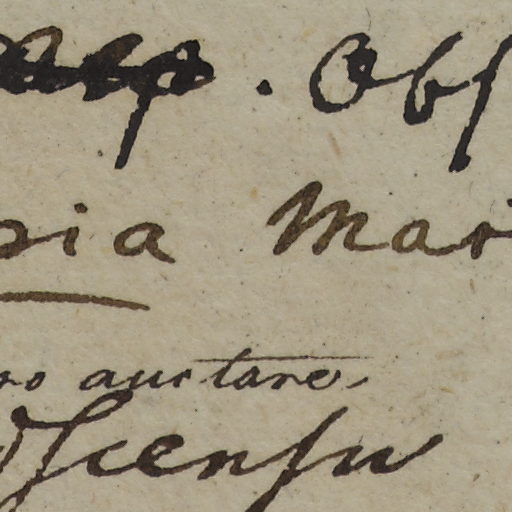 . Obs
ria Mar
ro auctare
dscensu